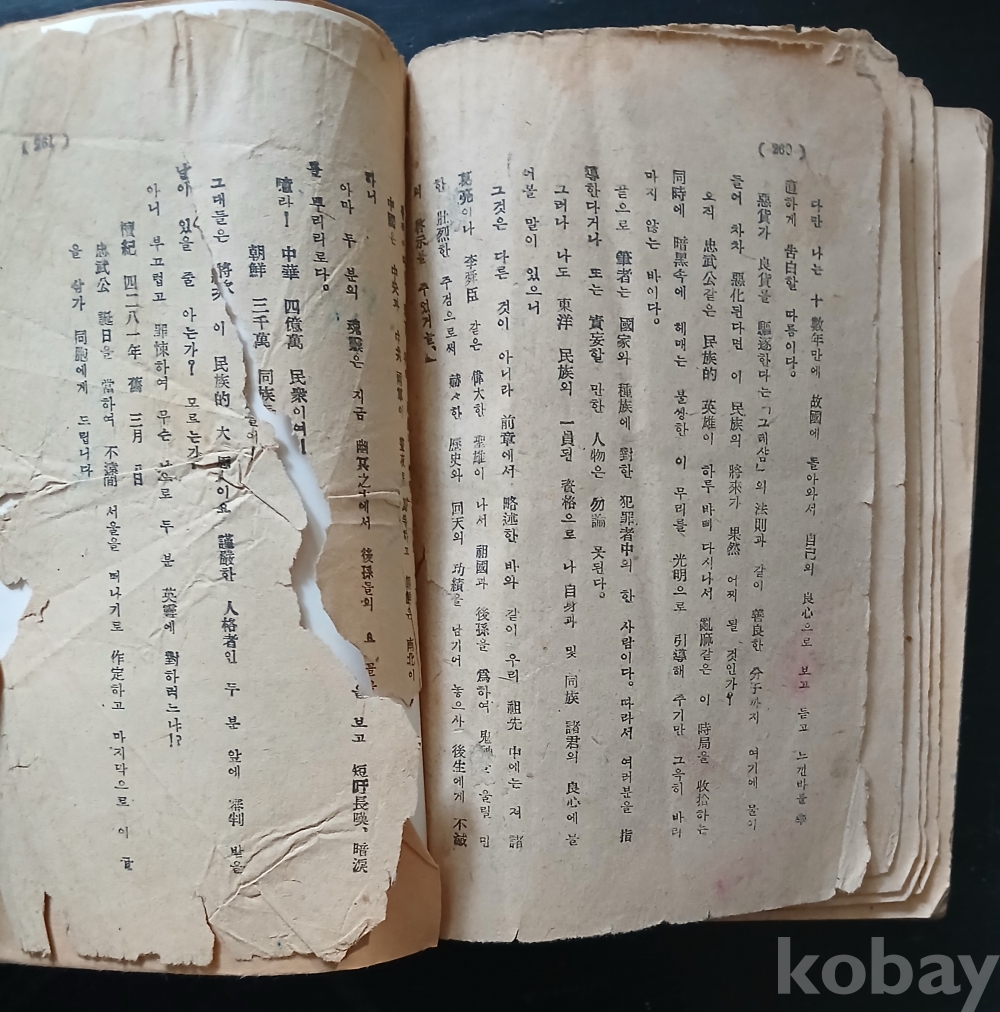 ( 260 )
다만 나는 十數年만에 故國에 돌아와서 自己의 良心으로 보고 듣고 느낀바를 率
直하게 告白할 따름이다。
惡貨가 良貨를 驅逐한다는「그레샴」의 法則과 같이 善良한 分子까지 여기에 물이
들어 차차 惡化된다면 이 民族의 將來가 果然 어찌 될 것인가?
오직 忠武公같은 民族的 英雄이 하루 바삐 다시나서 亂麻같은 이 時局을 收拾하는
同時에 暗黑속에 헤매는 불쌍한 이 무리를 光明으로 引導해 주기만 그윽히 바라
마지 않는 바이다。
끝으로 筆者는 國家와 種族에 對한 犯罪者中의 한 사람이다。 따라서 여러분을 指
導한다거나 또는 責妄할 만한 人物은 勿論 못된다。
그러나 나도 東洋 民族의 一員된 資格으로 나 自身과 및 同族 諸君의 良心에 물
어볼 말이 있으니
그것은 다른 것이 아니라 前章에서 略述한 바와 같이 우리 祖先 中에는 저 諸
葛亮이나 李舜臣 같은 偉大한 聖雄이 나서 祖國과 後孫을 爲하여 울릴 만
한 壯烈한 주검으로써 赫々한 歷史와 回天의 功績을 남기어 놓으사 後生에게 不滅
의 啓示를 주었거늘。』
中國은 南北이
하니
아마 두 분의 魂靈은 지금 幽冥之下에서 後孫들의 요 을 보고 短吁長嘆、暗淚
를 뿌리리로다。
噫라! 中華 四億萬 民衆이여!
朝鮮 三千萬 同族
그대들은 將次 이 民族的 大 이요 謹嚴한 人格者인 두 분 앞에 審判 받을
날이 있을 줄 아는가? 모르는가?
아니 부끄럽고 罪悚하여 무슨 낯으로 두 분 英靈에 對하려느냐!?
檀紀 四二八一年 舊 三月 日
忠武公 誕日을 當하여 不遠間 서울을 떠나기로 作定하고 마지막으로 이 글
을 삼가 同胞에게 드립니다
kobay